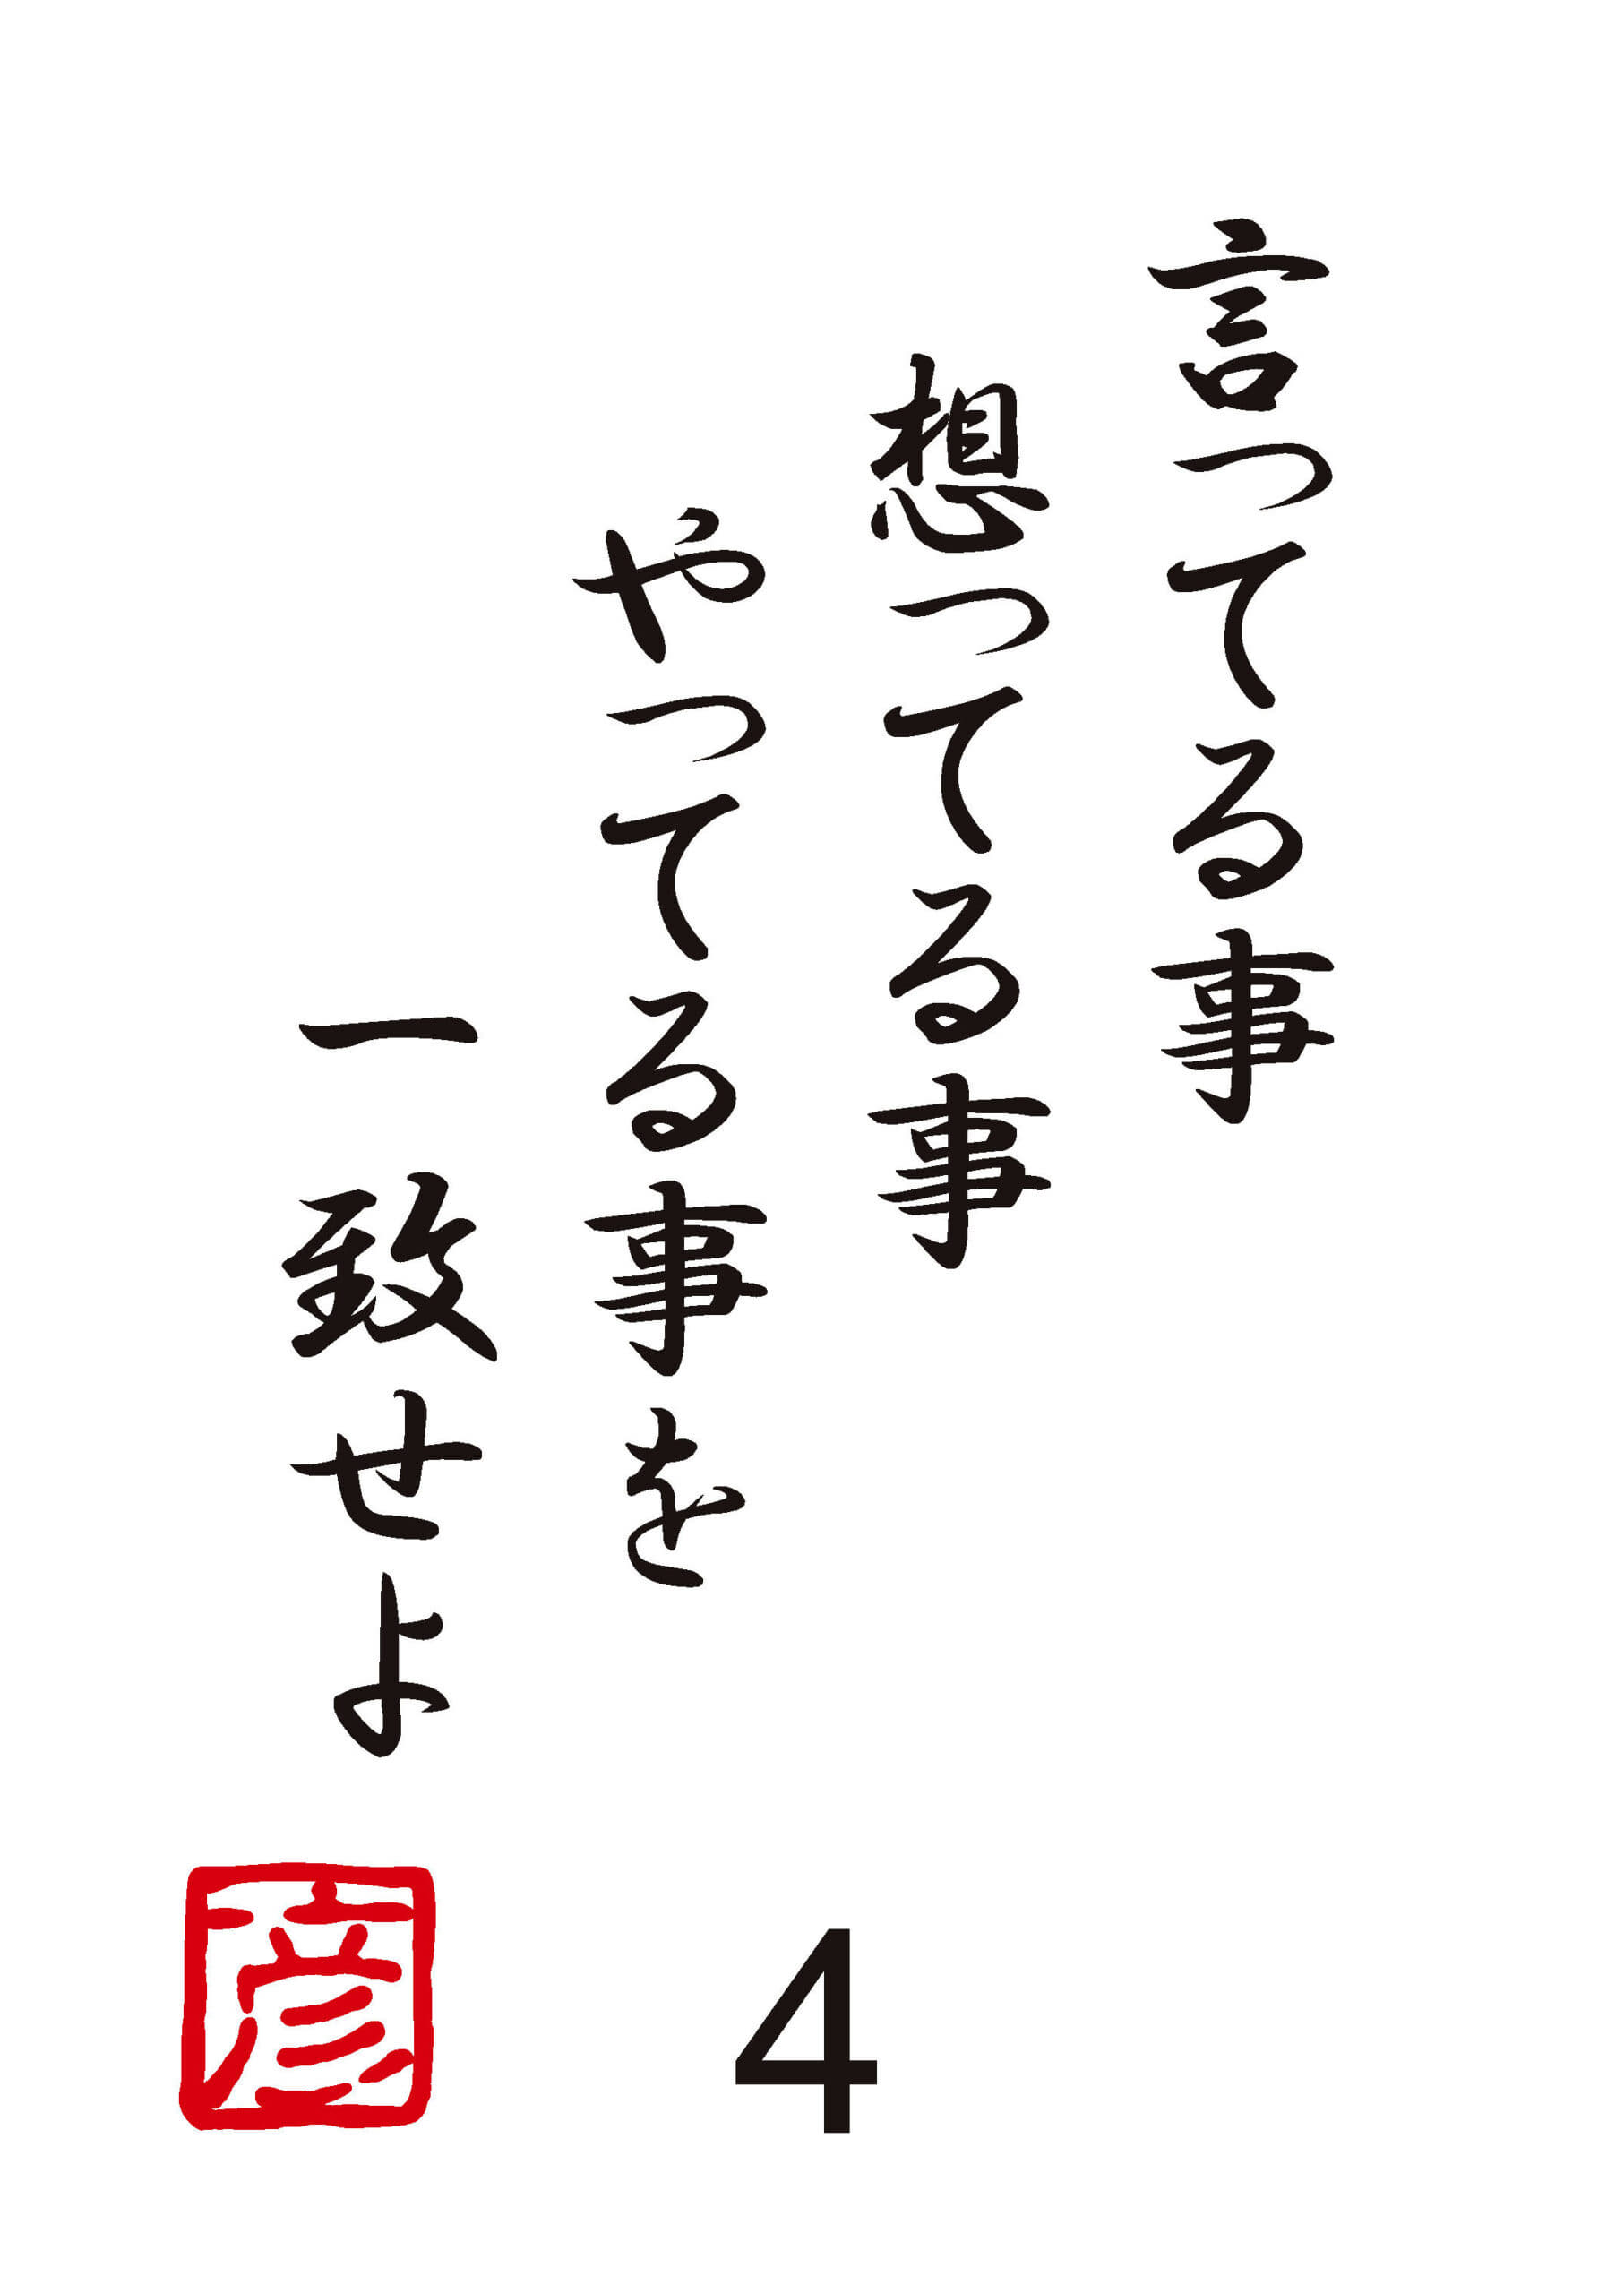 言ってる事
想ってる事
やってる事を
一致せよ
彦
4